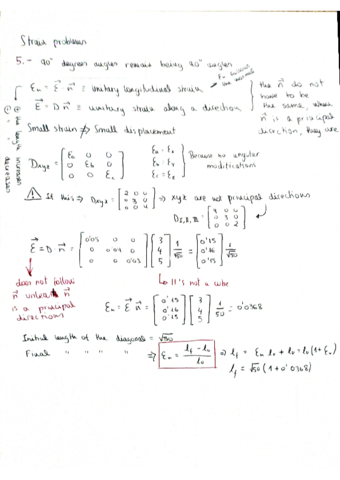 Strain problems
5. - 90° degrees angles remain being 90° angles
εn = ε⃗ n⃗ ≡ unitary longitudinal strain
ε⃗ = D n⃗ ≡ unitary strain along a direction
the n⃗ do not have to be the same, when n⃗ is a principal direction, they are
Small strain ⇏ Small displacement
Dxyz = [ 0 0
0 0
0 0 ]
Because no angular modifications
⚠ If this ⇒ Dxyz = [2 0 0
0 3 0
0 0 4] ⇒ xyz are not principal directions
DI,II,III = [4 0 0
0 3 0
0 0 2]
ε⃗ = D · n⃗ = [0'05 0 0
0 0'04 0
0 0 0'03] [3
4
5] 1/√50 = [0'15
0'16
0'15] 1/√50
does not follow n⃗ unless n⃗ is a principal directions
It's not a cube
εn = ε⃗ n⃗ = [0'15
0'16
0'15] [3
4
5] 1/50 = 0'0368
Initial length of the diagonal = √50
Final " " " " ⇒ εn = (lf - lo)/lo ⇒ lf = εn lo + lo = lo(1+εn)
lf = √50 (1+0'0368)